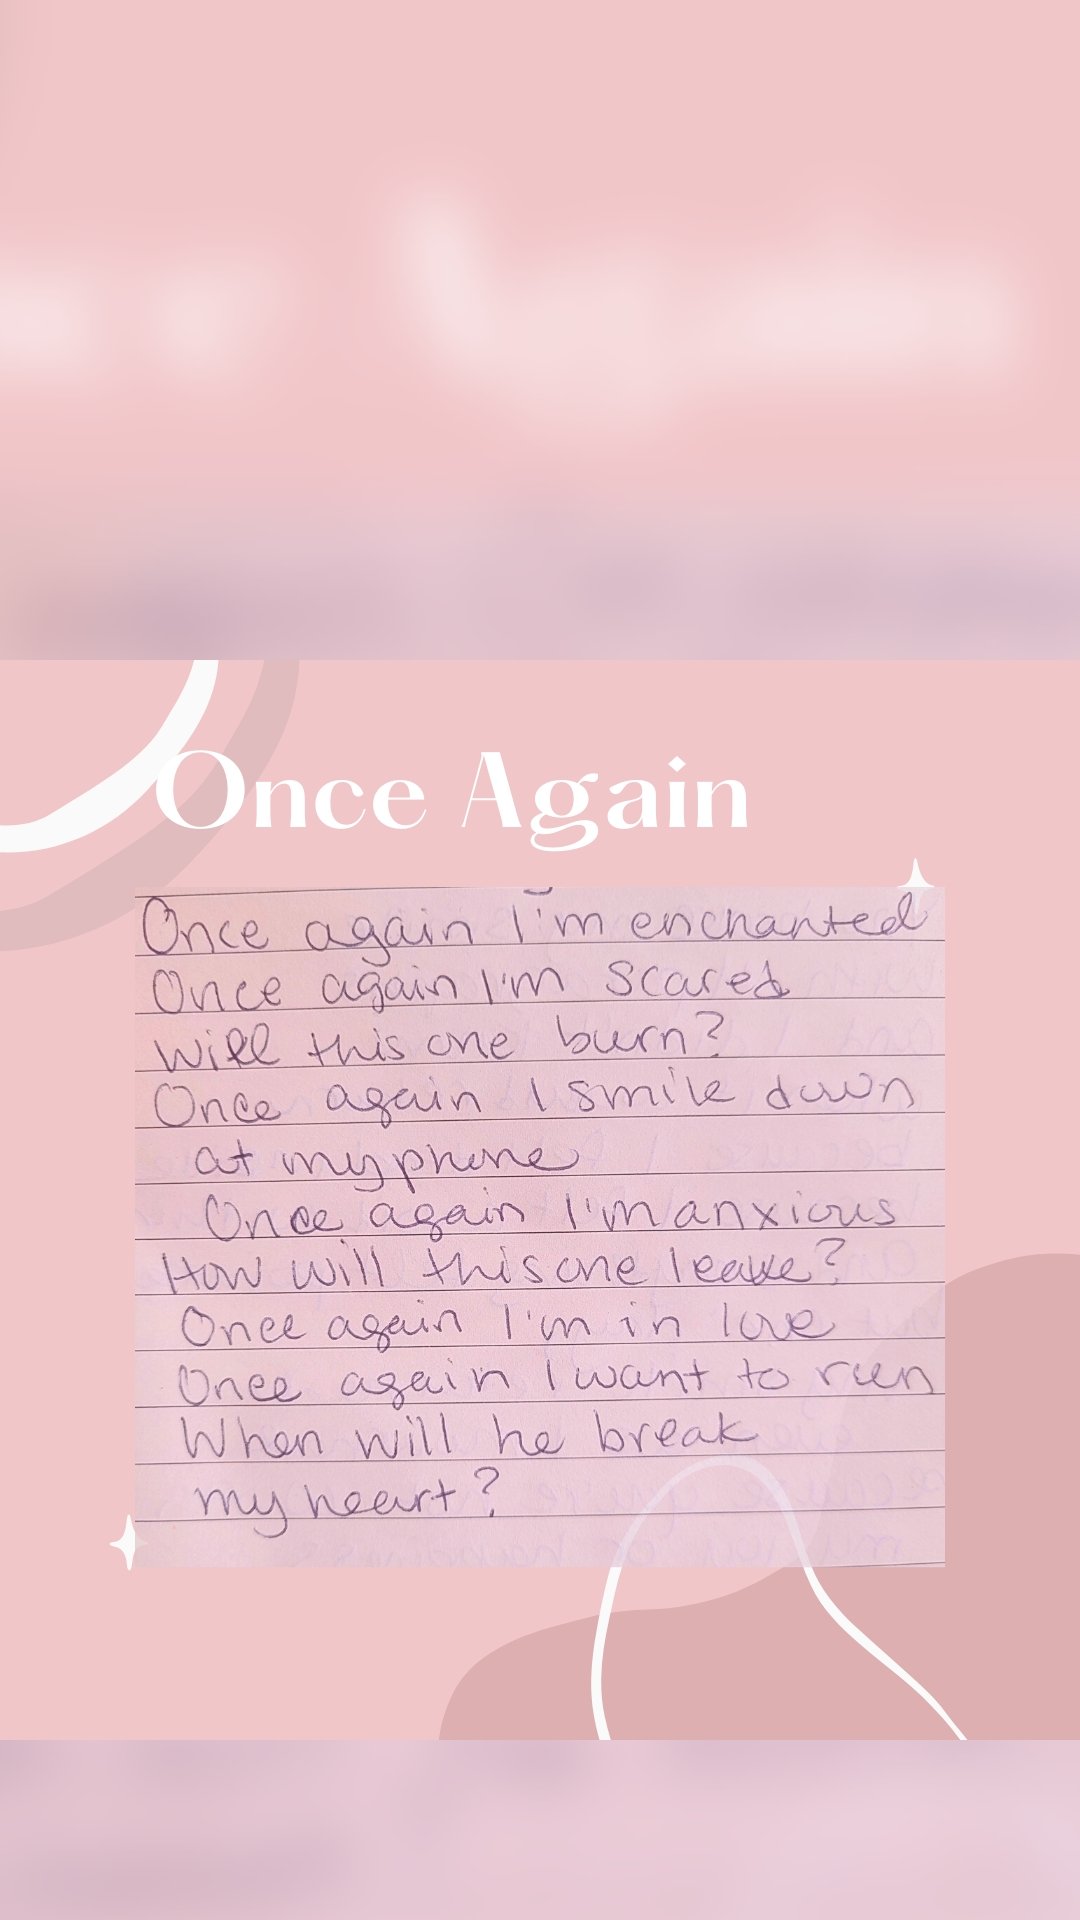 Once Again
Once again I'm enchanted
Once again I'm scared
Will this one burn?
Once again I smile down
at my phone
Once again I'm anxious
How will this one leave?
Once again I'm in love
Once again I want to run
When will he break
my heart?